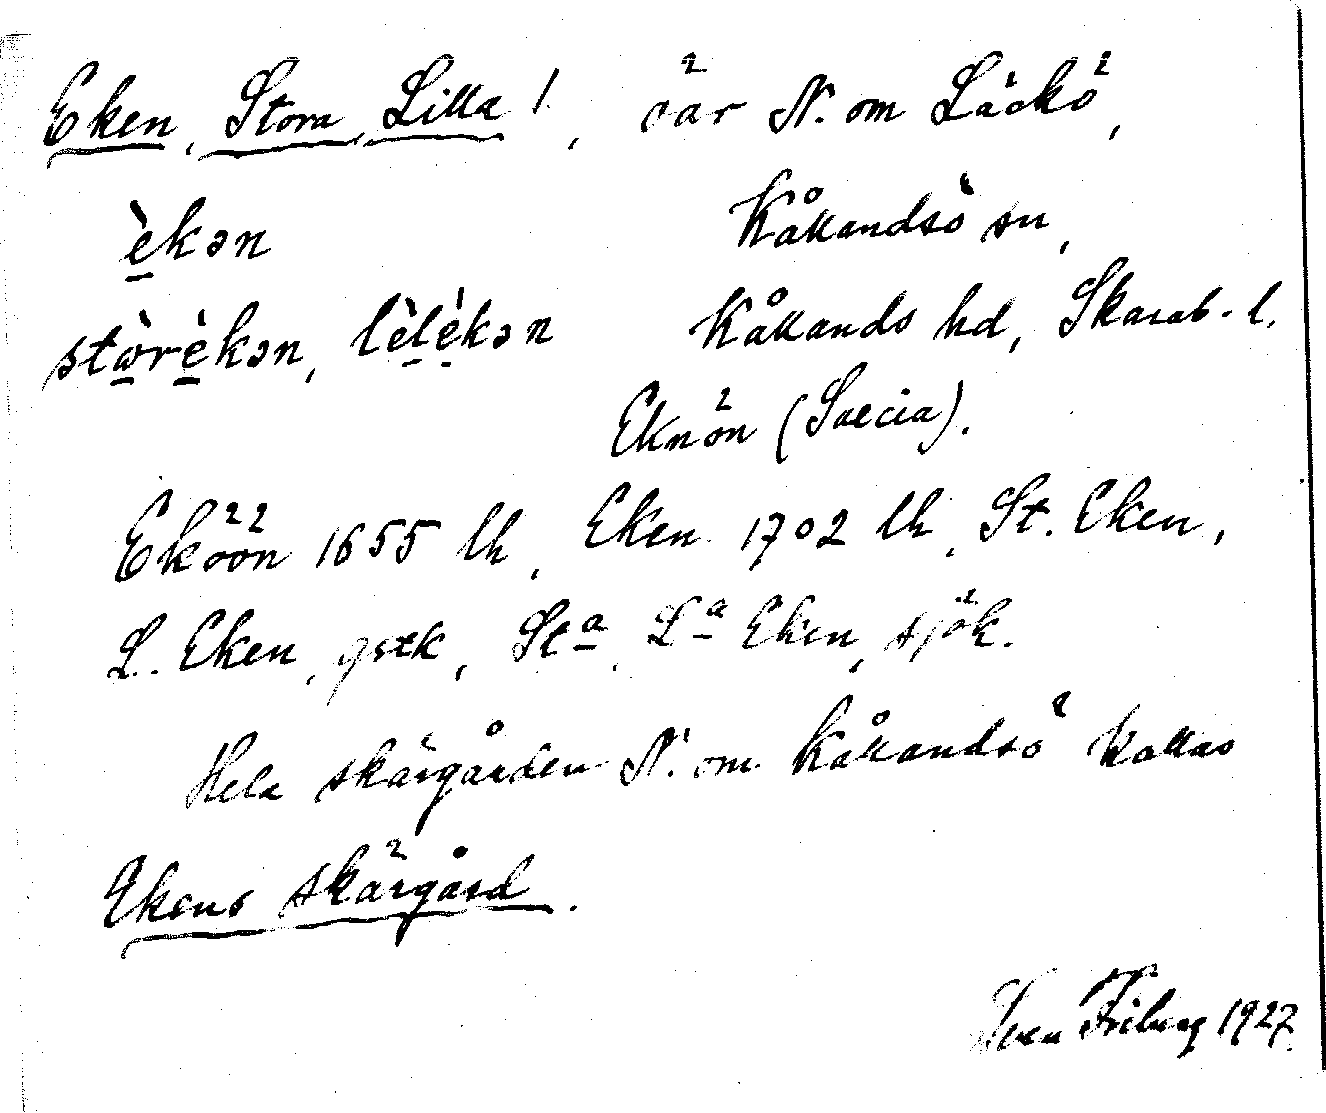 Eken, Stora, Lilla /, öar N. om Läckö,
èkən Kållandsö sn,
stòrèkən, lèlèkən Kållands hd, Skarab. l.
Eknön (Suecia).
Eköön 1655 lk, Eken 1702 lk, St. Eken,
L. Eken, gstk, St<u>a</u>, L<u>a</u> Eken, sjök.
Hela skärgården N. om Kållandsö kallas
Ekens skärgård.
Sven Friberg 1927.